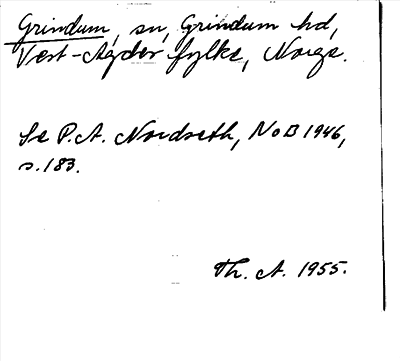 Grindum, sn, Grindum hd,
Vest-Agder fylke, Norge.
Se P.A. Nordseth, NoB 1946,
s.183.
Th. A. 1955.